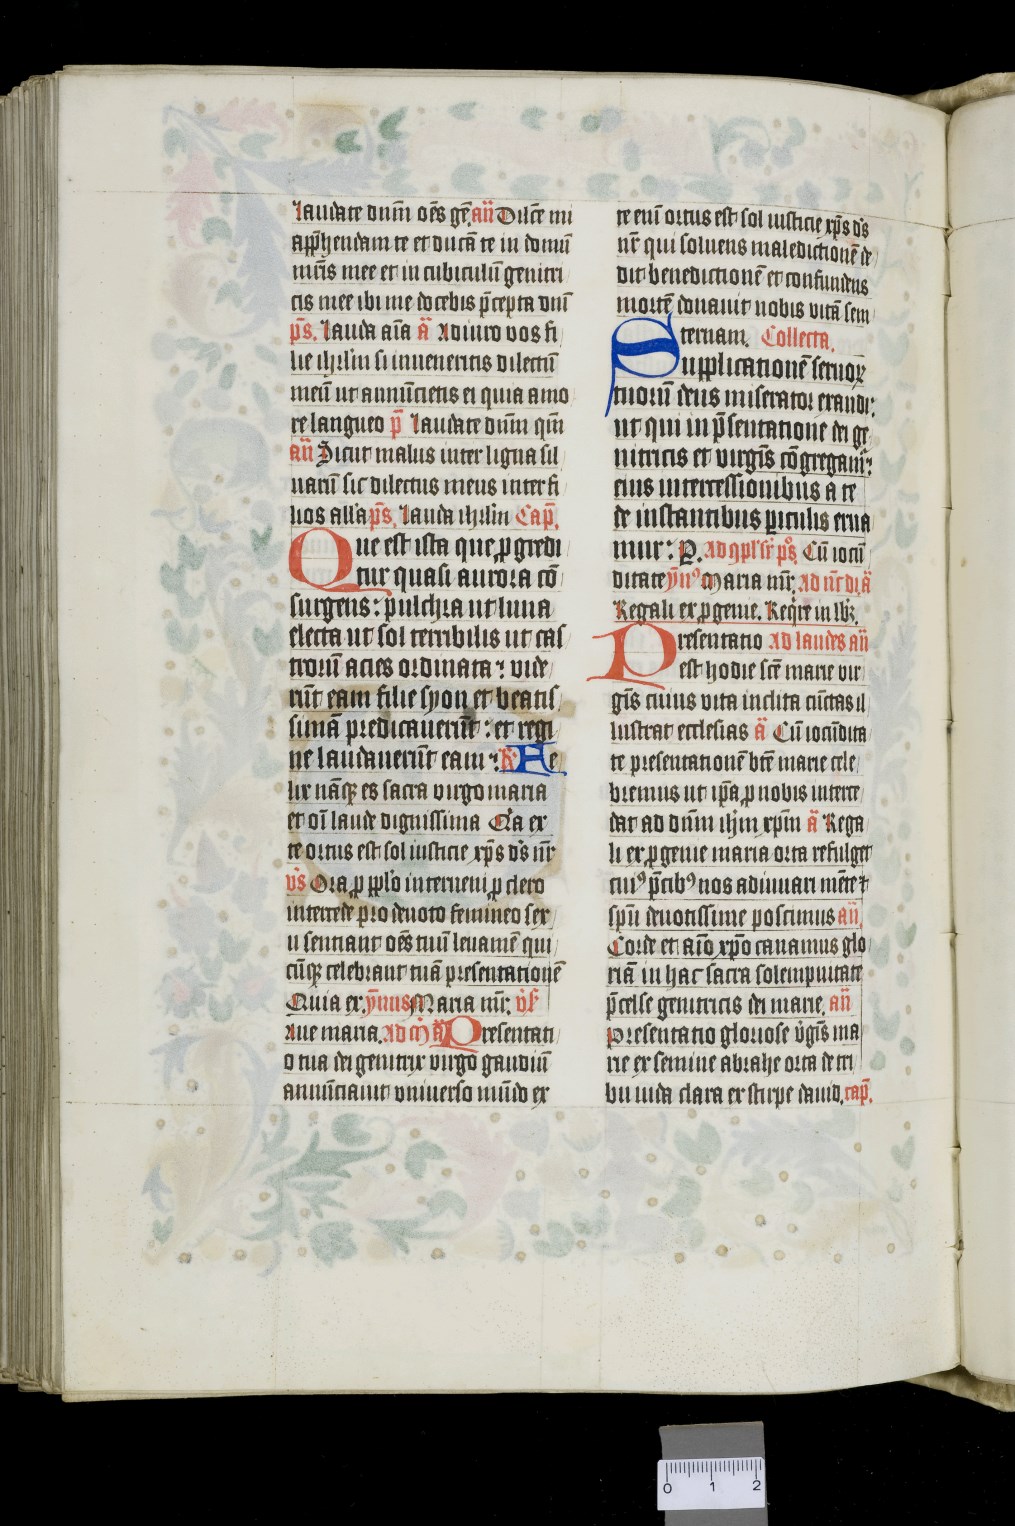 laudate dnm̄ oēs gē. an̄ Dilcē mi
app̄hendam te et ducā te in domū
mr̄is mee et in cubiculū genitri
cis mee ibi me docebis p̄cepta dnī
ps̄. lauda aīa ā Adiuro vos fi
lie ihrlm̄ si inueneritis dilectū
meū ut annūcietis ei quia amo
re langueo p̄ laudate dnm̄ qm̄
an̄ Sicut malus inter ligna sil
uarū sic dilectus meus inter fi
lios all'a ps̄. lauda ihrlm̄ Cap̄.
Que est ista que ꝓgredi
tur quasi aurora cō
surgens: pulchra ut luna
electa ut sol terribilis ut cas
trorū acies ordinata: vide
rūt eam filie syon et beatis
simā predicauerūt: et regi
ne laudauerūt eam: R̄ Fe
lix nāqꝫ es sacra virgo maria
et oī laude dignissima Q'a ex
te ortus est sol iusticie xp̄s ds̄ nr̄
vs̄ Ora ꝓ pplo interueni ꝓ clero
intercede pro deuoto femineo sex
u sentiant oēs tuū leuamē qui
cūqꝫ celebrant tuā presentationē
Quia ex. ym̄nus Maria mr̄. vs̄
Aue maria. Ad m̄ ā Presentati
o tua dei genitrix virgo gaudiū
annūciauit vniuerso mūdo ex
te enī ortus est sol iusticie xp̄s ds̄
nr̄ qui soluens maledictionē de
dit benedictionē et confundens
mortē donauit nobis vitā sem
piternam. Collecta.
Supplicationē seruoꝝ
tuorū deus miserator exaudi:
ut qui in p̄sentatione dei ge
nitricis et virgīs cōgregamr̄:
eius intercessionibus a te
de instantibus ꝑiculis erua
mur: P. Ad ꝯpl'. sr̄ ps̄. Cū iocū
ditate ym̄ꝰ Maria mr̄. Ad nc̄ di. ā
Regali ex ꝓgenie. Req̄re in lbr̄.
Presentatio Ad laudes an̄
est hodie scē marie vir
gīs cuius vita inclita cūctas il
lustrat ecclesias ā Cū iocūdita
te presentationē btē marie cele
bremus ut ip̄a ꝓ nobis interce
dat ad dnm̄ ihm̄ xpm̄ ā Rega
li ex ꝓgenie maria orta refulget
cuiꝰ p̄cibꝰ nos adiuuari mēte ⁊
spū deuotissime poscimus an̄.
Corde et aīo xpō canamus glo
riā in hac sacra solempnitate
p̄celse genitricis dei marie. an̄
Presentatio gloriose v̄gīs ma
rie ex semine abrahe orta de tri
bu iuda clara ex stirpe dauid. cap̄.
0 1 2